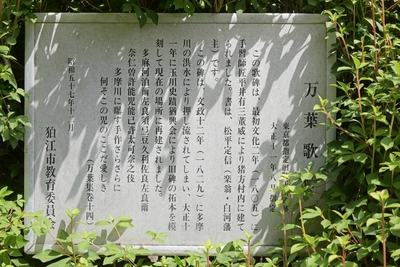 万葉歌
東京都指定旧
大正十一年
この歌碑は、最初文化二年(一八〇五)に
手習師匠平井有三董威により猪方村内に建て
られました。書は、松平定信(楽翁・白河藩
主)です。
この碑は、文政十二年(一八二九)に多摩
川の洪水により押し流されてしまい、大正十
一年に玉川史蹟猶興会により旧碑の拓本を模
刻して現在の場所に再建されました。
多麻河泊尓左良須弖豆久利佐良左良尓
奈仁曽許能児能己許太可奈之伎
多摩川に曝す手作さらさらに
何そこの児のここだ愛しき
(万葉集巻十四)
昭和五十七年十二月
狛江市教育委員会